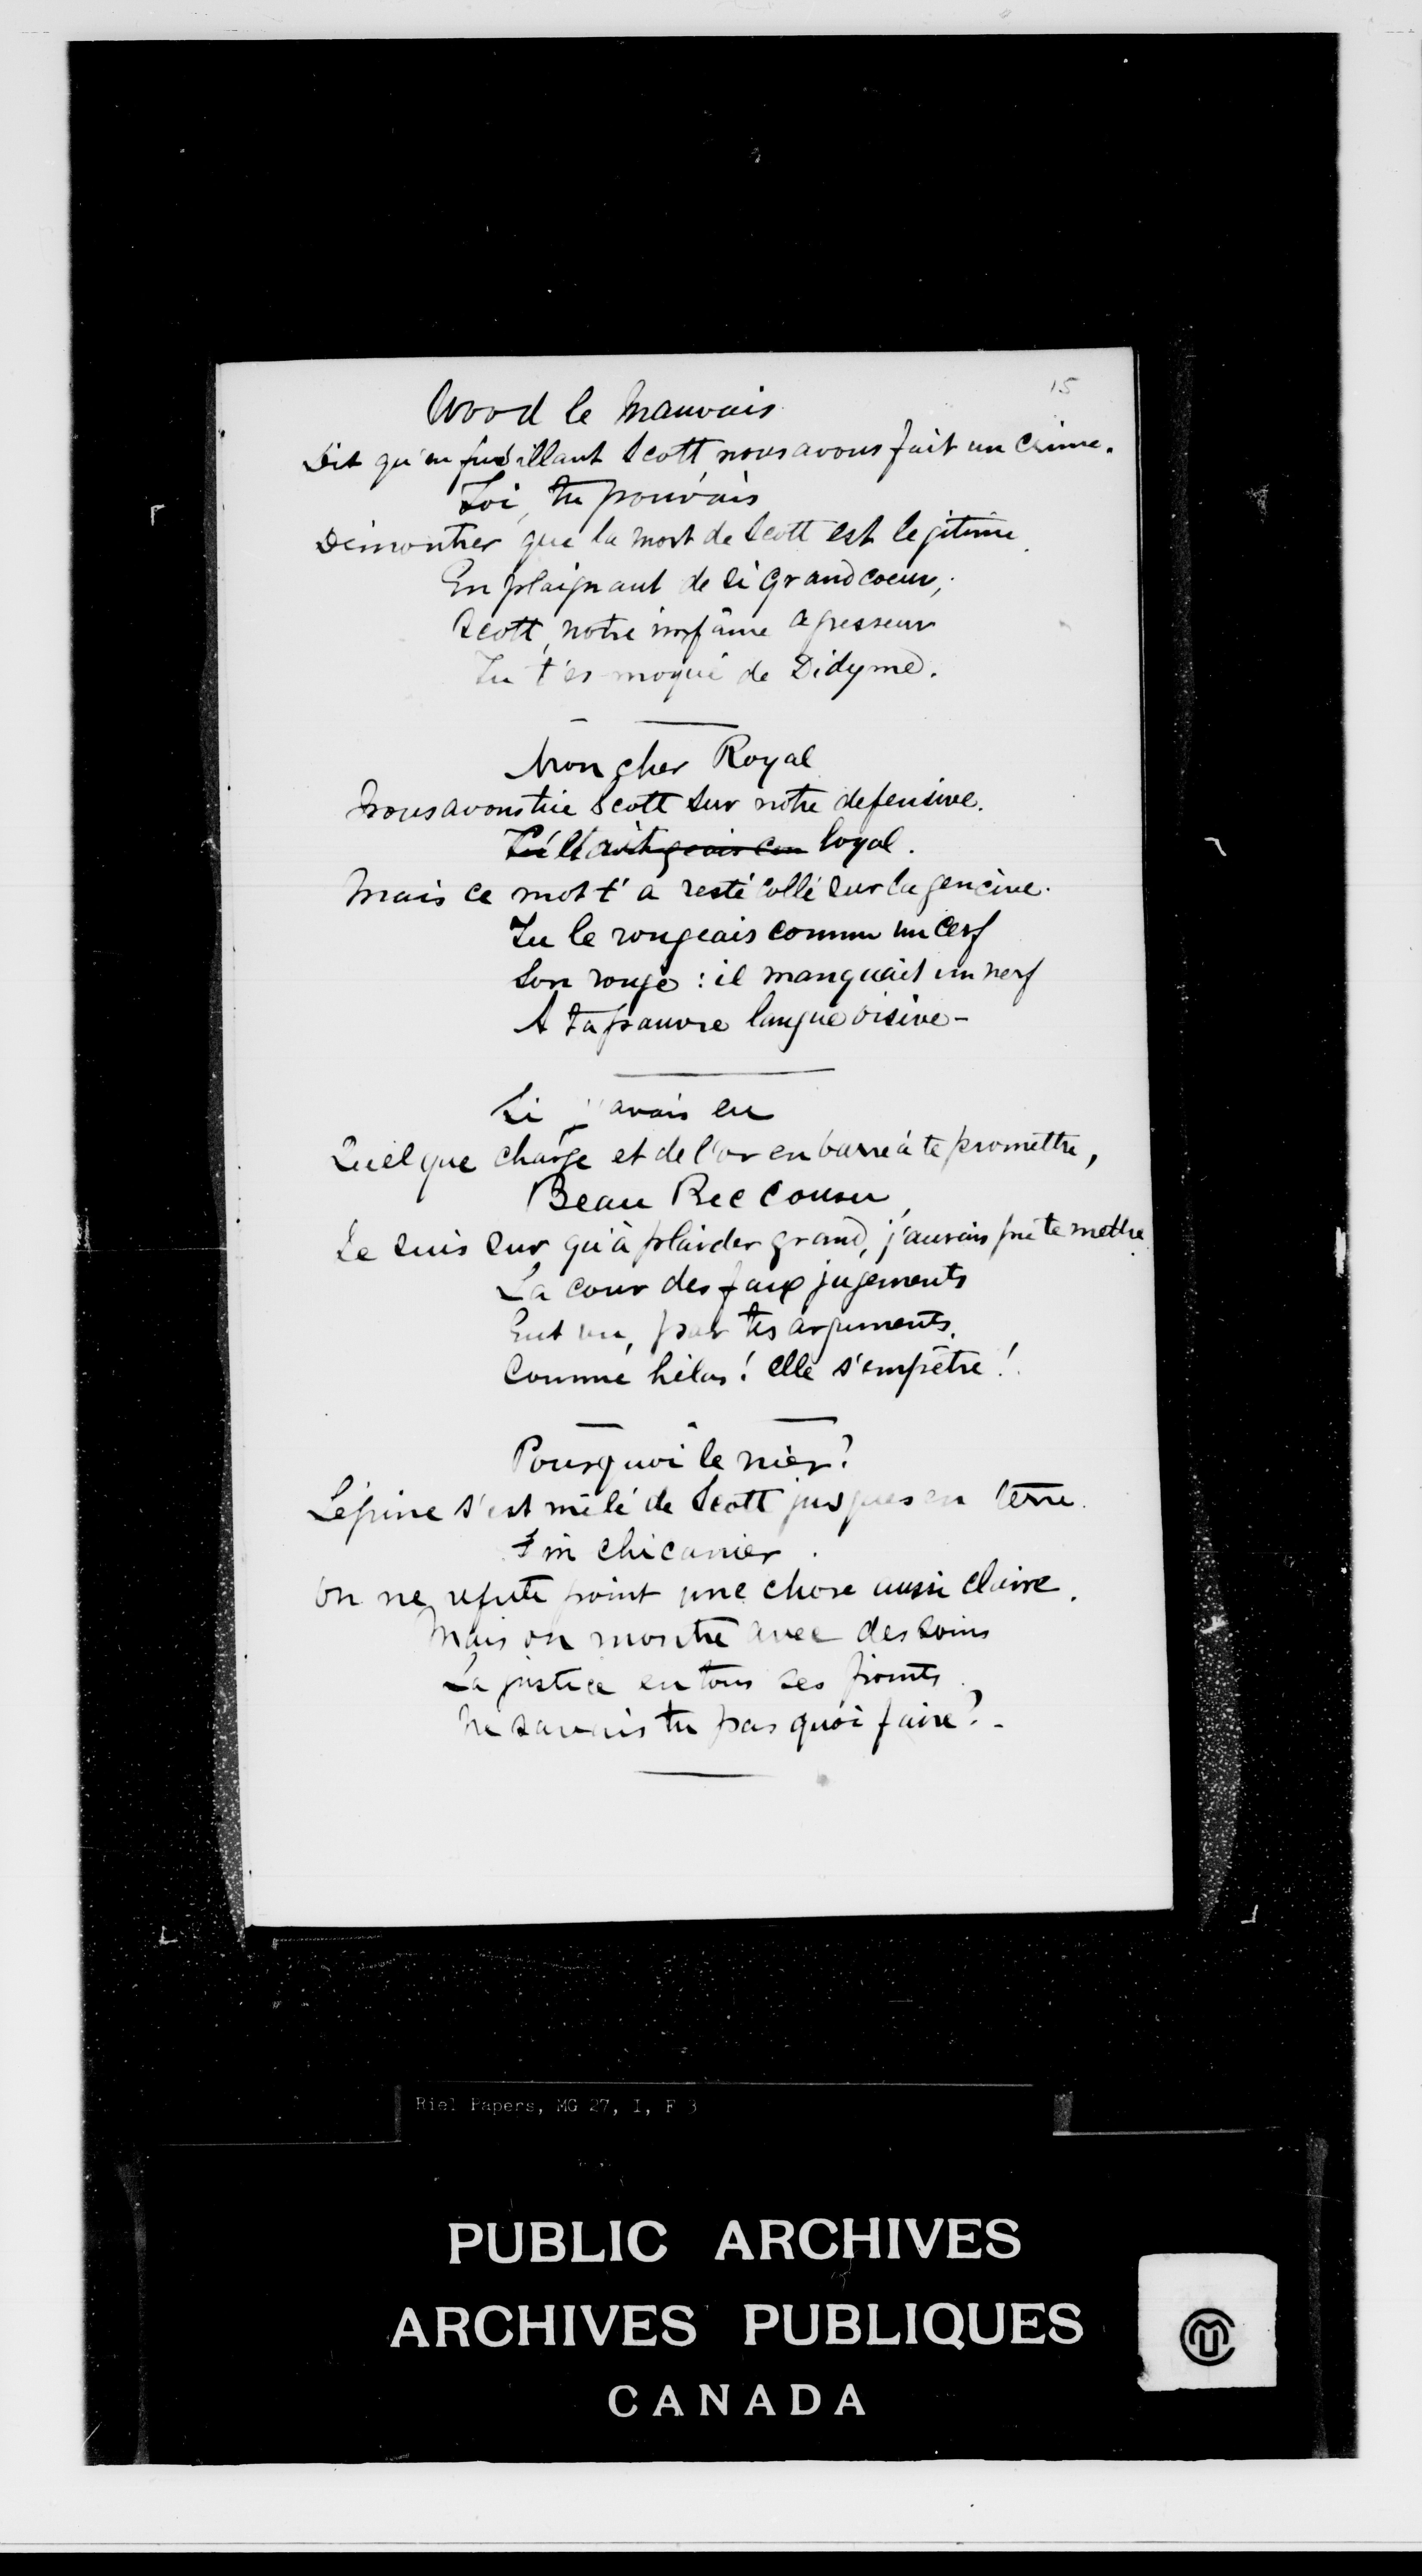 15
Wood le Mauvais
Dit qu'en fusillant Scott, nous avons fait un crime.
Toi, tu pouvais
Démontrer que la mort de Scott est legitime.
En plaignant de si grand coeur,
Scott, notre infâme agresseur
Tu t'es moqué de Didyme.
Mon cher Royal
Nous avons tué Scott sur notre defensive.
loyal.
Mais ce mot t'a resté collé sur la gencive.
Tu le rongeais comme un cerf
Son ronge : il manquait un nerf
A ta pauvre langue oisive -
Si j'avais eu
Quelque charge et de l'or en barre à te promettre,
Beau Bec cousu,
Je suis sur qu'à plaider grand, j'aurais pu te mettre.
La cour des faux jugements
Eut vu, par tes arguments,
Comme hélas ! elle s'empêtre !
Pourquoi le nier ?
Lépine s'est mêlé de Scott jusques en terre.
Fin chicanier.
On ne refute point une chose aussi claire.
Mais on montre avec des soins
La justice en tous ses points.
Ne savais tu pas quoi faire ? -
Riel Papers, MG 27, I, F 3
PUBLIC ARCHIVES
ARCHIVES PUBLIQUES
CANADA